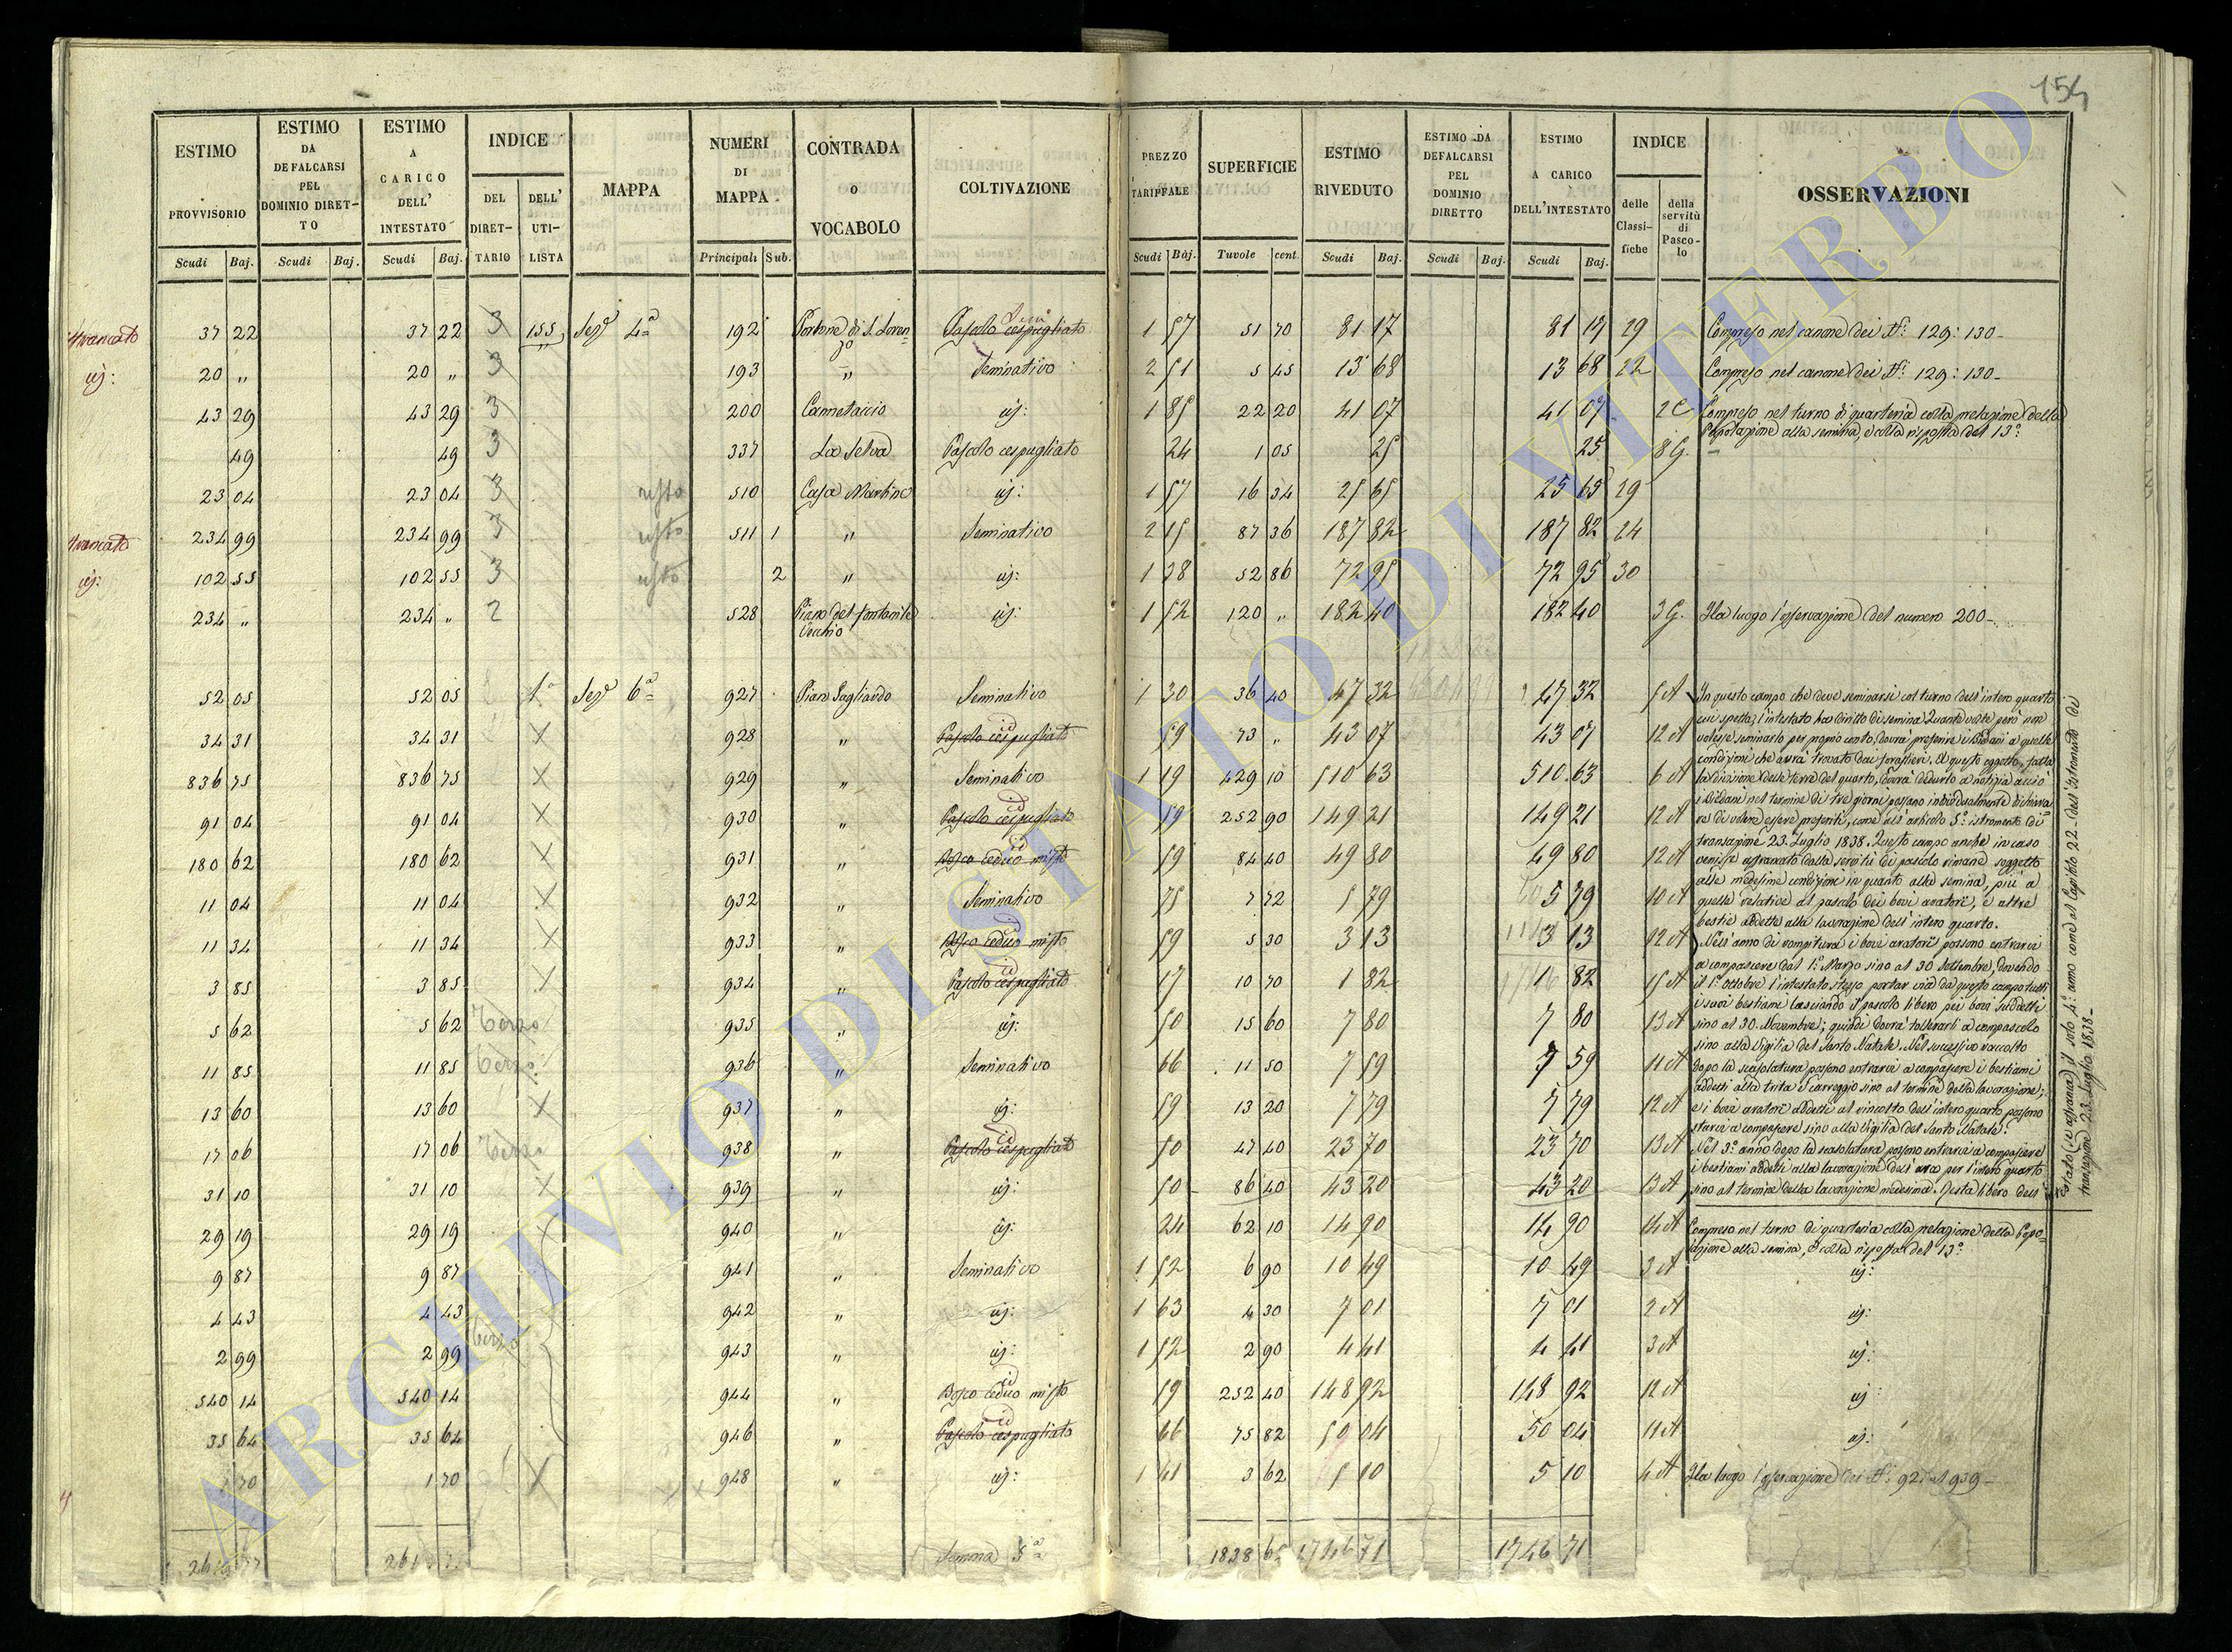 154
ESTIMO PROVVISORIO | ESTIMO DA DEFALCARSI PEL DOMINIO DIRETTO | ESTIMO A CARICO DELL' INTESTATO | INDICE DEL DIRETTARIO | DELL' UTILISTA | MAPPA | NUMERI DI MAPPA | CONTRADA O VOCABOLO | COLTIVAZIONE | PREZZO TARIFFALE | SUPERFICIE | ESTIMO RIVEDUTO | ESTIMO DA DEFALCARSI PEL DOMINIO DIRETTO | ESTIMO A CARICO DELL'INTESTATO | INDICE delle Classifiche | della servitù di Pascolo | OSSERVAZIONI
Scudi Baj. | Scudi Baj. | Scudi Baj. | Principali Sub. | Scudi Baj. | Tavole cent. | Scudi Baj. | Scudi Baj. | Scudi Baj.
37 22 | 37 22 | 3 | 155 | Sezᵉ 4ª | 192 | Pontone di S. Lorenzo | Pascolo cespugliato | 1 57 | 51 70 | 81 17 | 81 17 | 29 | Compreso nel canone dei Nⁱ 129: 130
20 " | 20 " | 3 | 193 | " | Seminativo | 2 51 | 5 45 | 13 68 | 13 68 | 22 | Compreso nel canone dei Nⁱ 129: 130
43 29 | 43 29 | 3 | 200 | Cannetaccio | id: | 1 85 | 22 20 | 41 07 | 41 07 | 2 C | Compreso nel turno di quarteria colla prelazione della
Popolazione alla semina, e colla risposta del 13º
49 | 49 | 3 | 337 | La Selva | Pascolo cespugliato | 24 | 1 05 | 25 | 25 | 8 G.
23 04 | 23 04 | 3 | 510 | Casa Martino | id: | 1 57 | 16 34 | 25 65 | 25 65 | 29
234 99 | 234 99 | 3 | 511 1 | " | Seminativo | 2 15 | 87 36 | 187 82 | 187 82 | 24
id: | 102 55 | 102 55 | 3 | 2 | " | id: | 1 38 | 52 86 | 72 95 | 72 95 | 30
234 " | 234 " | 2 | 528 | Piano del fontanile Vecchio | id: | 1 52 | 120 " | 182 40 | 182 40 | 3 G. | Ha luogo l'osservazione del numero 200
52 05 | 52 05 | 1 | Sezᵉ 6ª | 927 | Pian Gagliardo | Seminativo | 1 30 | 36 40 | 47 32 | 47 32 | 5 A
34 31 | 34 31 | X | 928 | " | Pascolo cespugliato | 59 | 73 " | 43 07 | 43 07 | 12 A
836 75 | 836 75 | X | 929 | " | Seminativo | 1 19 | 429 10 | 510 63 | 510 63 | 6 A
91 04 | 91 04 | X | 930 | " | Pascolo cespugliato | 59 | 252 90 | 149 21 | 149 21 | 12 A
180 62 | 180 62 | X | 931 | " | Bosco ceduo misto | 59 | 84 40 | 49 80 | 49 80 | 12 A
11 04 | 11 04 | X | 932 | " | Seminativo | 75 | 7 72 | 5 79 | 5 79 | 10 A
11 34 | 11 34 | X | 933 | " | Bosco ceduo misto | 59 | 5 30 | 3 13 | 3 13 | 12 A
3 85 | 3 85 | X | 934 | " | Pascolo cespugliato | 17 | 10 70 | 1 82 | 1 82 | 15 A
5 62 | 5 62 | terzo | 935 | " | id: | 50 | 15 60 | 7 80 | 7 80 | 13 A
11 85 | 11 85 | terzo | 936 | " | Seminativo | 66 | 11 50 | 7 59 | 7 59 | 11 A
13 60 | 13 60 | X | 937 | " | id: | 59 | 13 20 | 7 79 | 7 79 | 12 A
17 06 | 17 06 | terzo | 938 | " | Pascolo cespugliato | 50 | 47 40 | 23 70 | 23 70 | 13 A
31 10 | 31 10 | X | 939 | " | id: | 50 | 86 40 | 43 20 | 43 20 | 13 A
In questo campo che deve seminarsi col turno dell'intero quarto
cui spetta, l'intestato ha diritto di semina. Quante volte però non
volesse seminarlo per proprio conto, dovrà preferire i Bledani a quelle
condizioni che avrà trovato dai forastieri. A questo oggetto, fatta
la divisione delle terre del quarto, dovrà dedurlo a notizia acciò
i Bledani nel termine di tre giorni possano individualmente dichiara-
re di volere essere preferiti, come all'articolo 5º istromento di
transazione 23 Luglio 1838. Questo campo anche in caso
venisse affrancato dalla servitù di pascolo rimane soggetto
alle medesime condizioni in quanto alla semina, più a
quelle relative al pascolo dei bovi aratori, e altre
bestie addette alla lavorazione dell'intero quarto.
Nell'anno di rompitura i bovi aratori possono entrarci
a compascere dal 1º Marzo sino al 30 Settembre, dovendo
il 1º ottobre l'intestato stesso portar via da questo campo tutti
i suoi bestiami lasciando il pascolo libero pei bovi suddetti
sino al 30 Novembre; quindi dovrà tollerarli a compascolo
sino alla Vigilia del Santo Natale. Nel successivo raccolto
dopo la scasolatura possono entrarci a compascere i bestiami
addetti alla trita e carreggio sino al termine della lavorazione;
e i bovi aratori addetti al rincolto dell'intero quarto possono
starci a compascere sino alla Vigilia del Santo Natale.
Nel 3º anno dopo la scasolatura possono entrarci a compascere
i bestiami addetti alla lavorazione dell'ara per l'intero quarto
sino al termine della lavorazione medesima. Resta libero dell'
estato (se affrancato) il solo 4º anno come al Capitolo 22 dell'istromento di
transazione 23 Luglio 1838
29 19 | 29 19 | X | 940 | " | id: | 24 | 62 10 | 14 90 | 14 90 | 14 A | Compreso nel turno di quarteria colla prelazione della Popo-
lazione alla semina, e colla risposta del 13º
9 87 | 9 87 | 941 | " | Seminativo | 1 52 | 6 90 | 10 49 | 10 49 | 3 A | id:
4 43 | 4 43 | 942 | " | id: | 1 63 | 4 30 | 7 01 | 7 01 | 2 A | id:
2 99 | 2 99 | terzo | 943 | " | id: | 1 52 | 2 90 | 4 41 | 4 41 | 3 A | id:
540 14 | 540 14 | 944 | " | Bosco ceduo misto | 59 | 252 40 | 148 92 | 148 92 | 12 A | id:
35 64 | 35 64 | 946 | " | Pascolo cespugliato | 66 | 75 82 | 50 04 | 50 04 | 11 A | id:
1 70 | 1 70 | X | 948 | " | id: | 1 41 | 3 62 | 5 10 | 5 10 | 4 A | Ha luogo l'osservazione dei Nⁱ 927 al 939
Somma 5ª | 1838 65 | 1746 71 | 1746 71
ARCHIVIO DI STATO DI VITERBO